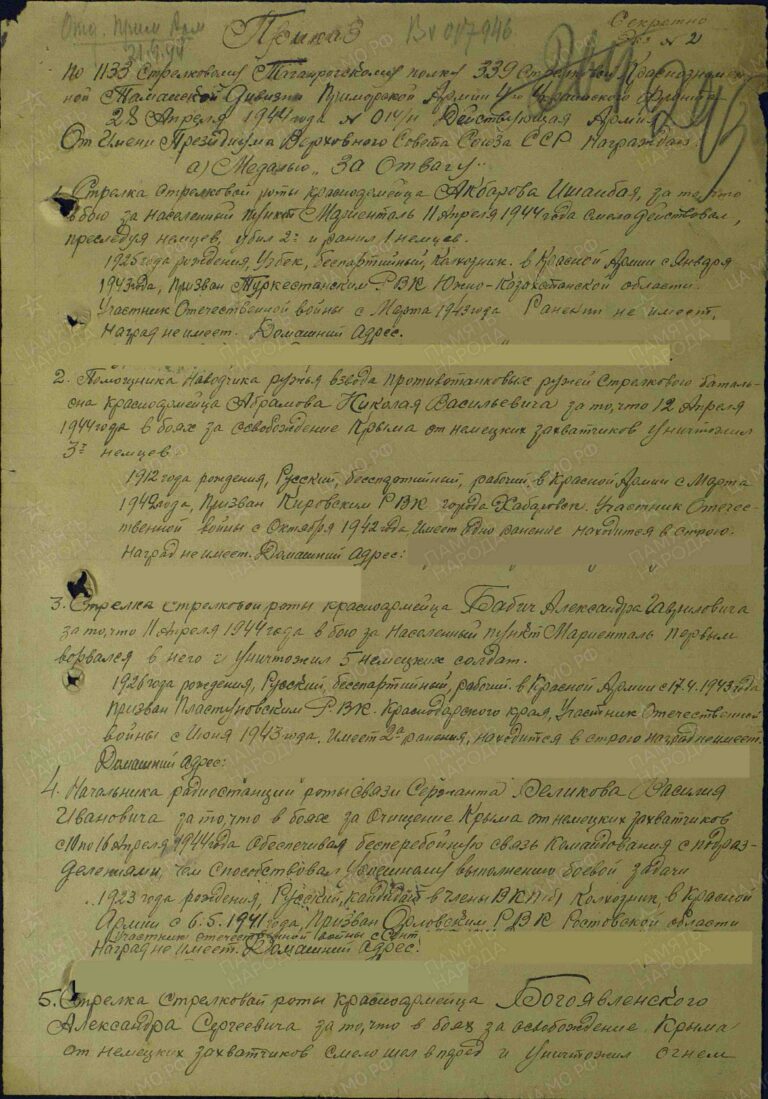 Отд. Прим Арм
Приказ
Секретно
Экз № 2
По 1133 Стрелковому Таганрогскому полку 339 Стрелковой Краснознамен-
ной Таманской Дивизии Приморской Армии 4го Украинского Фронта
28 Апреля 1944 года № 014/н Действующая Армия
От Имени Президиума Верховного Совета Союза ССР Награждаю:
а) Медалью „За Отвагу"
1. Стрелка стрелковой роты красноармейца Акбарова Ишанбая, за то, что
в бою за населенный пункт Мариенталь 11 Апреля 1944 года смело действовал,
преследуя немцев, убил 2х и ранил 1 немцев.
1925 года рождения, Узбек, беспартийный, колхозник. в Красной Армии с Января
1943 года, призван Туркестанским РВК Южно-Казахстанской области.
Участник Отечественной войны с Марта 1943 года Ранений не имеет.
Наград не имеет. Домашний Адрес.
2. Помощника Наводчика ружья взвода противотанковых ружей Стрелкового баталь-
она красноармейца Абрамова Николая Васильевича за то, что 12 Апреля
1944 года в боях за освобождение Крыма от немецких захватчиков уничтожил
3х немцев.
1912 года рождения, Русский, беспартийный, рабочий. в Красной Армии с Марта
1942 года, Призван Кировским РВК города Хабаровск. Участник Отечес-
твенной войны с Октября 1942 года, Имеет одно ранение находится в строю.
Наград не имеет. Домашний Адрес:
3. Стрелка стрелковой роты красноармейца Бабич Александра Гавриловича
за то, что 11 Апреля 1944 года в бою за Населенный пункт Мариенталь первым
ворвался в него и уничтожил 5 немецких солдат.
1926 года рождения, Русский, беспартийный, рабочий. в Красной Армии с 17.4.1943 года
Призван Пластуновским РВК. Краснодарского края, Участник Отечественной
войны с Июня 1943 года. Имеет 2а ранения, находится в строю наград не имеет.
Домашний Адрес:
4. Начальника радиостанции роты связи Сержанта Великова Василия
Ивановича за то, что в боях за очищение Крыма от немецких захватчиков
с 10 по 16 Апреля 1944 года обеспечивая бесперебойную связь командования с подраз-
делениями, чем способствовал успешному выполнению боевой задачи
1923 года рождения, Русский, кандидат в члены ВКП(б) Колхозник, в Красной
Армии с 6.5.1941 года, Призван Орловским РВК Ростовской области
Участник отечественной войны с Сент.
Наград не имеет. Домашний Адрес:
5. Стрелка Стрелковой роты красноармейца Богоявленского
Александра Сергеевича за то, что в боях за освобождение Крыма
от немецких захватчиков смело шел вперед и уничтожил огнем